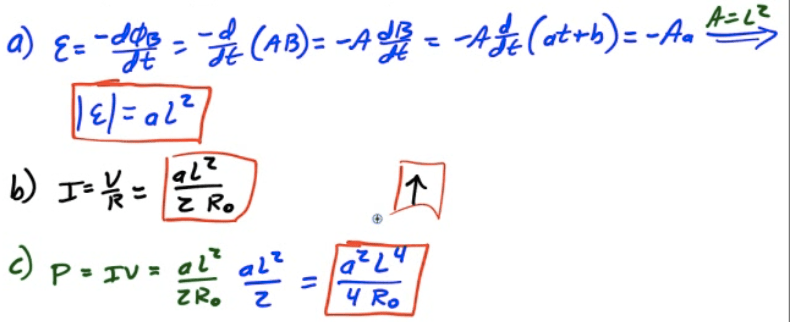 a) ε = -dϕB/dt = -d/dt (AB) = -A dB/dt = -A d/dt (at+b) = -Aa A=L² ⟹
|ε| = aL²
b) I = V/R = aL²/2R₀ ↑
c) P = IV = aL²/2R₀ aL²/2 = a²L⁴/4R₀